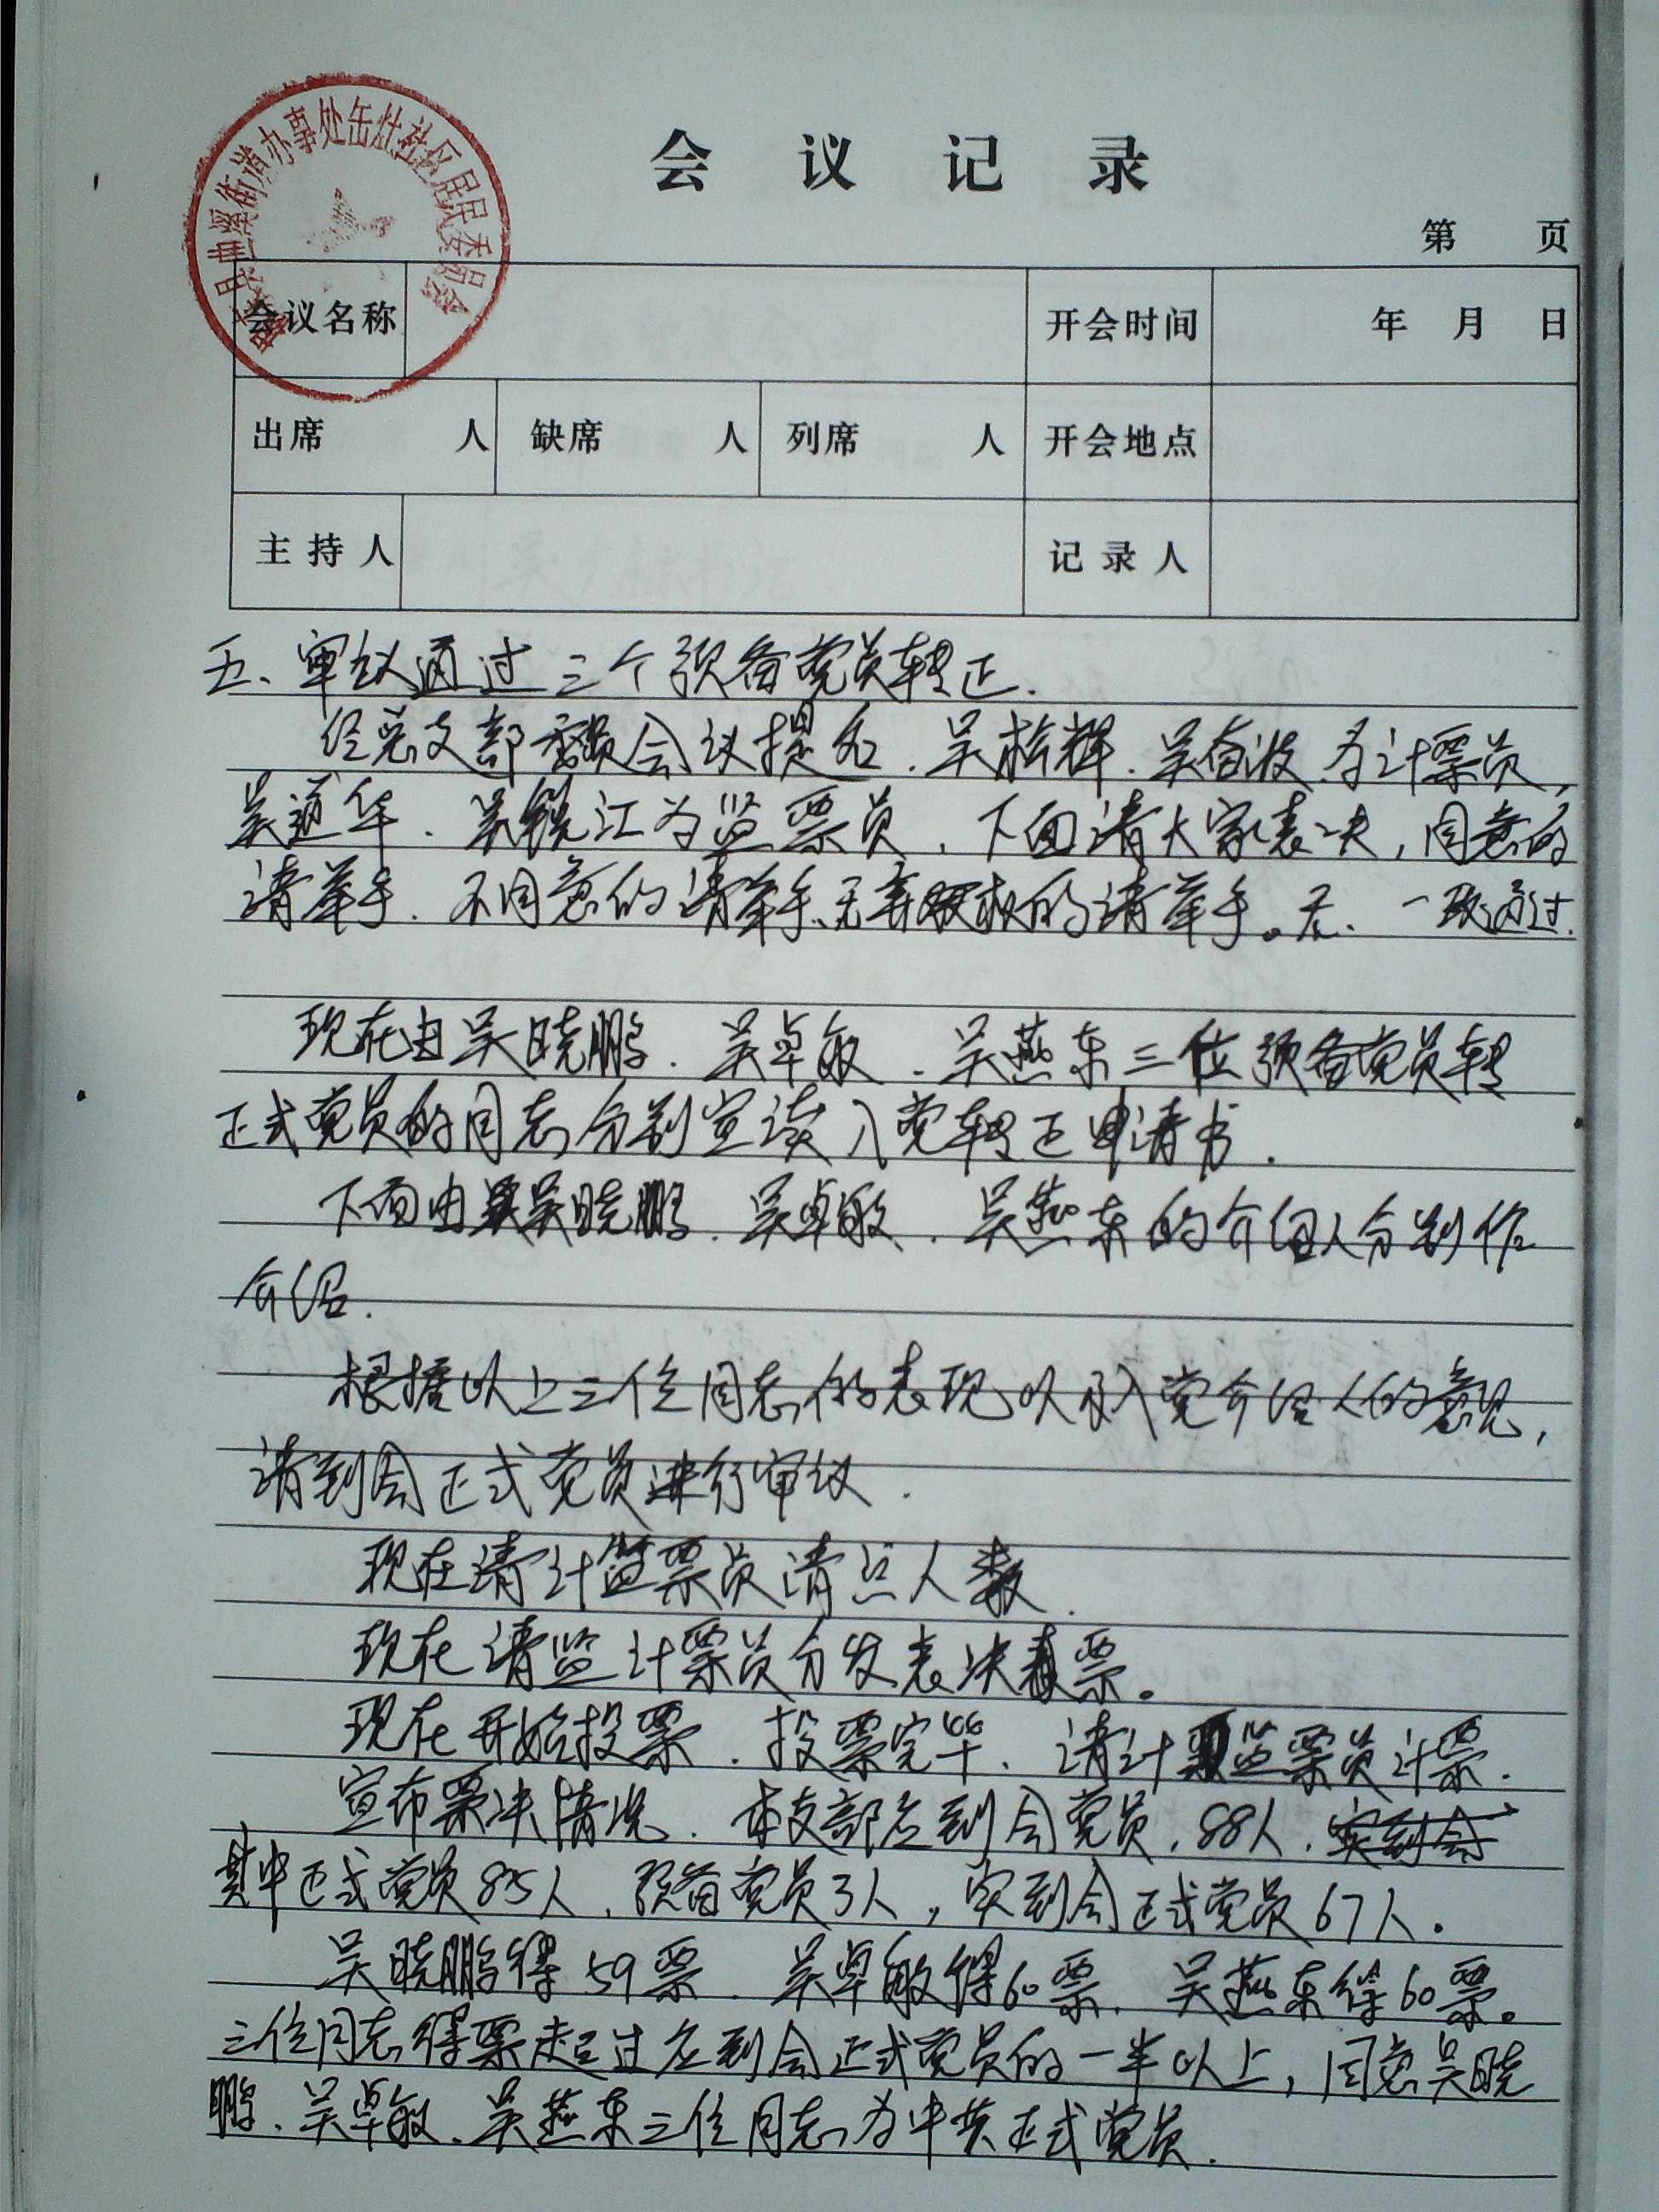 街道办事处缶灶社区居民委员会
会议记录
第 页
会议名称 开会时间 年 月 日
出席 人 缺席 人 列席 人 开会地点
主持人 记录人
五、审议通过三个预备党员转正.
经总支部委员会议提名.吴松辉.吴奋波.为计票员,
吴道华.吴锐江为监票员.下面请大家表决,同意的
请举手.不同意的请举手、无弃权的请举手。无.一致通过.
现在由吴晓鹏.吴卓敏.吴燕东三位预备党员转
正式党员的同志分别宣读入党转正申请书.
下面由吴晓鹏.吴卓敏.吴燕东的介绍人分别作
介绍.
根据以上三位同志的表现以及入党介绍人的意见,
请到会正式党员进行审议.
现在请计监票员清点人数.
现在请监计票员分发表决票。
现在开始投票.投票完毕.请计监票员计票.
宣布票决情况.本支部应到会党员.88人.实到会
其中正式党员85人.预备党员3人,实到会正式党员67人.
吴晓鹏得59票.吴卓敏得60票.吴燕东得60票。
三位同志得票超过应到会正式党员的一半以上,同意吴晓
鹏.吴卓敏.吴燕东三位同志为中共正式党员.